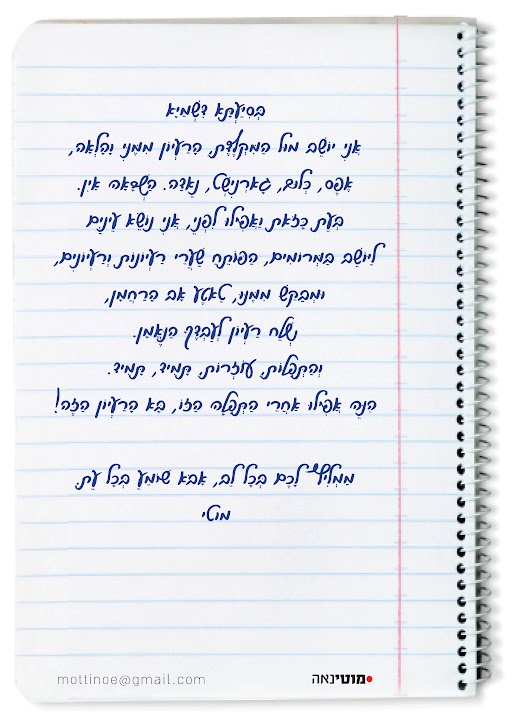 בְּסִיַּעְתָּא דִּשְׁמַיָּא
אֲנִי יוֹשֵׁב מוּל הַמִּקְלֶדֶת. הָרַעְיוֹן מִמֶּנִּי וָהָלְאָה,
אֶפֶס, כְּלוּם, גָּארְנִישְׁט, נָאדָה. הַשְׁרָאָה אֵין.
בְּעֵת כָּזֹאת וַאֲפִילּוּ לִפְנֵי, אֲנִי נוֹשֵׂא עֵינַיִם
לְיוֹשֵׁב בַּמְּרוֹמִים, הַפּוֹתֵחַ שַׁעֲרֵי רַעְיוֹנוֹת וְרַעְיוֹנִים,
וּמְבַקֵּשׁ מִמֶּנּוּ, טַאטֶע אַב הָרַחֲמָן,
שְׁלַח רַעְיוֹן לְעַבְדְּךָ הַנֶּאֱמָן.
וְהַתְּפִלּוֹת עוֹזְרוֹת. תָּמִיד, תָּמִיד.
הִנֵּה אֲפִילּוּ אַחֲרֵי הַתְּפִלָּה הַזּוֹ, בָּא הָרַעְיוֹן הַזֶּה!
מַמְלִיץ לָכֶם בְּכָל לֵב, אַבָּא שׁוֹמֵעַ בְּכָל עֵת.
מוֹטִי
mottinoe@gmail.com מוטינאה